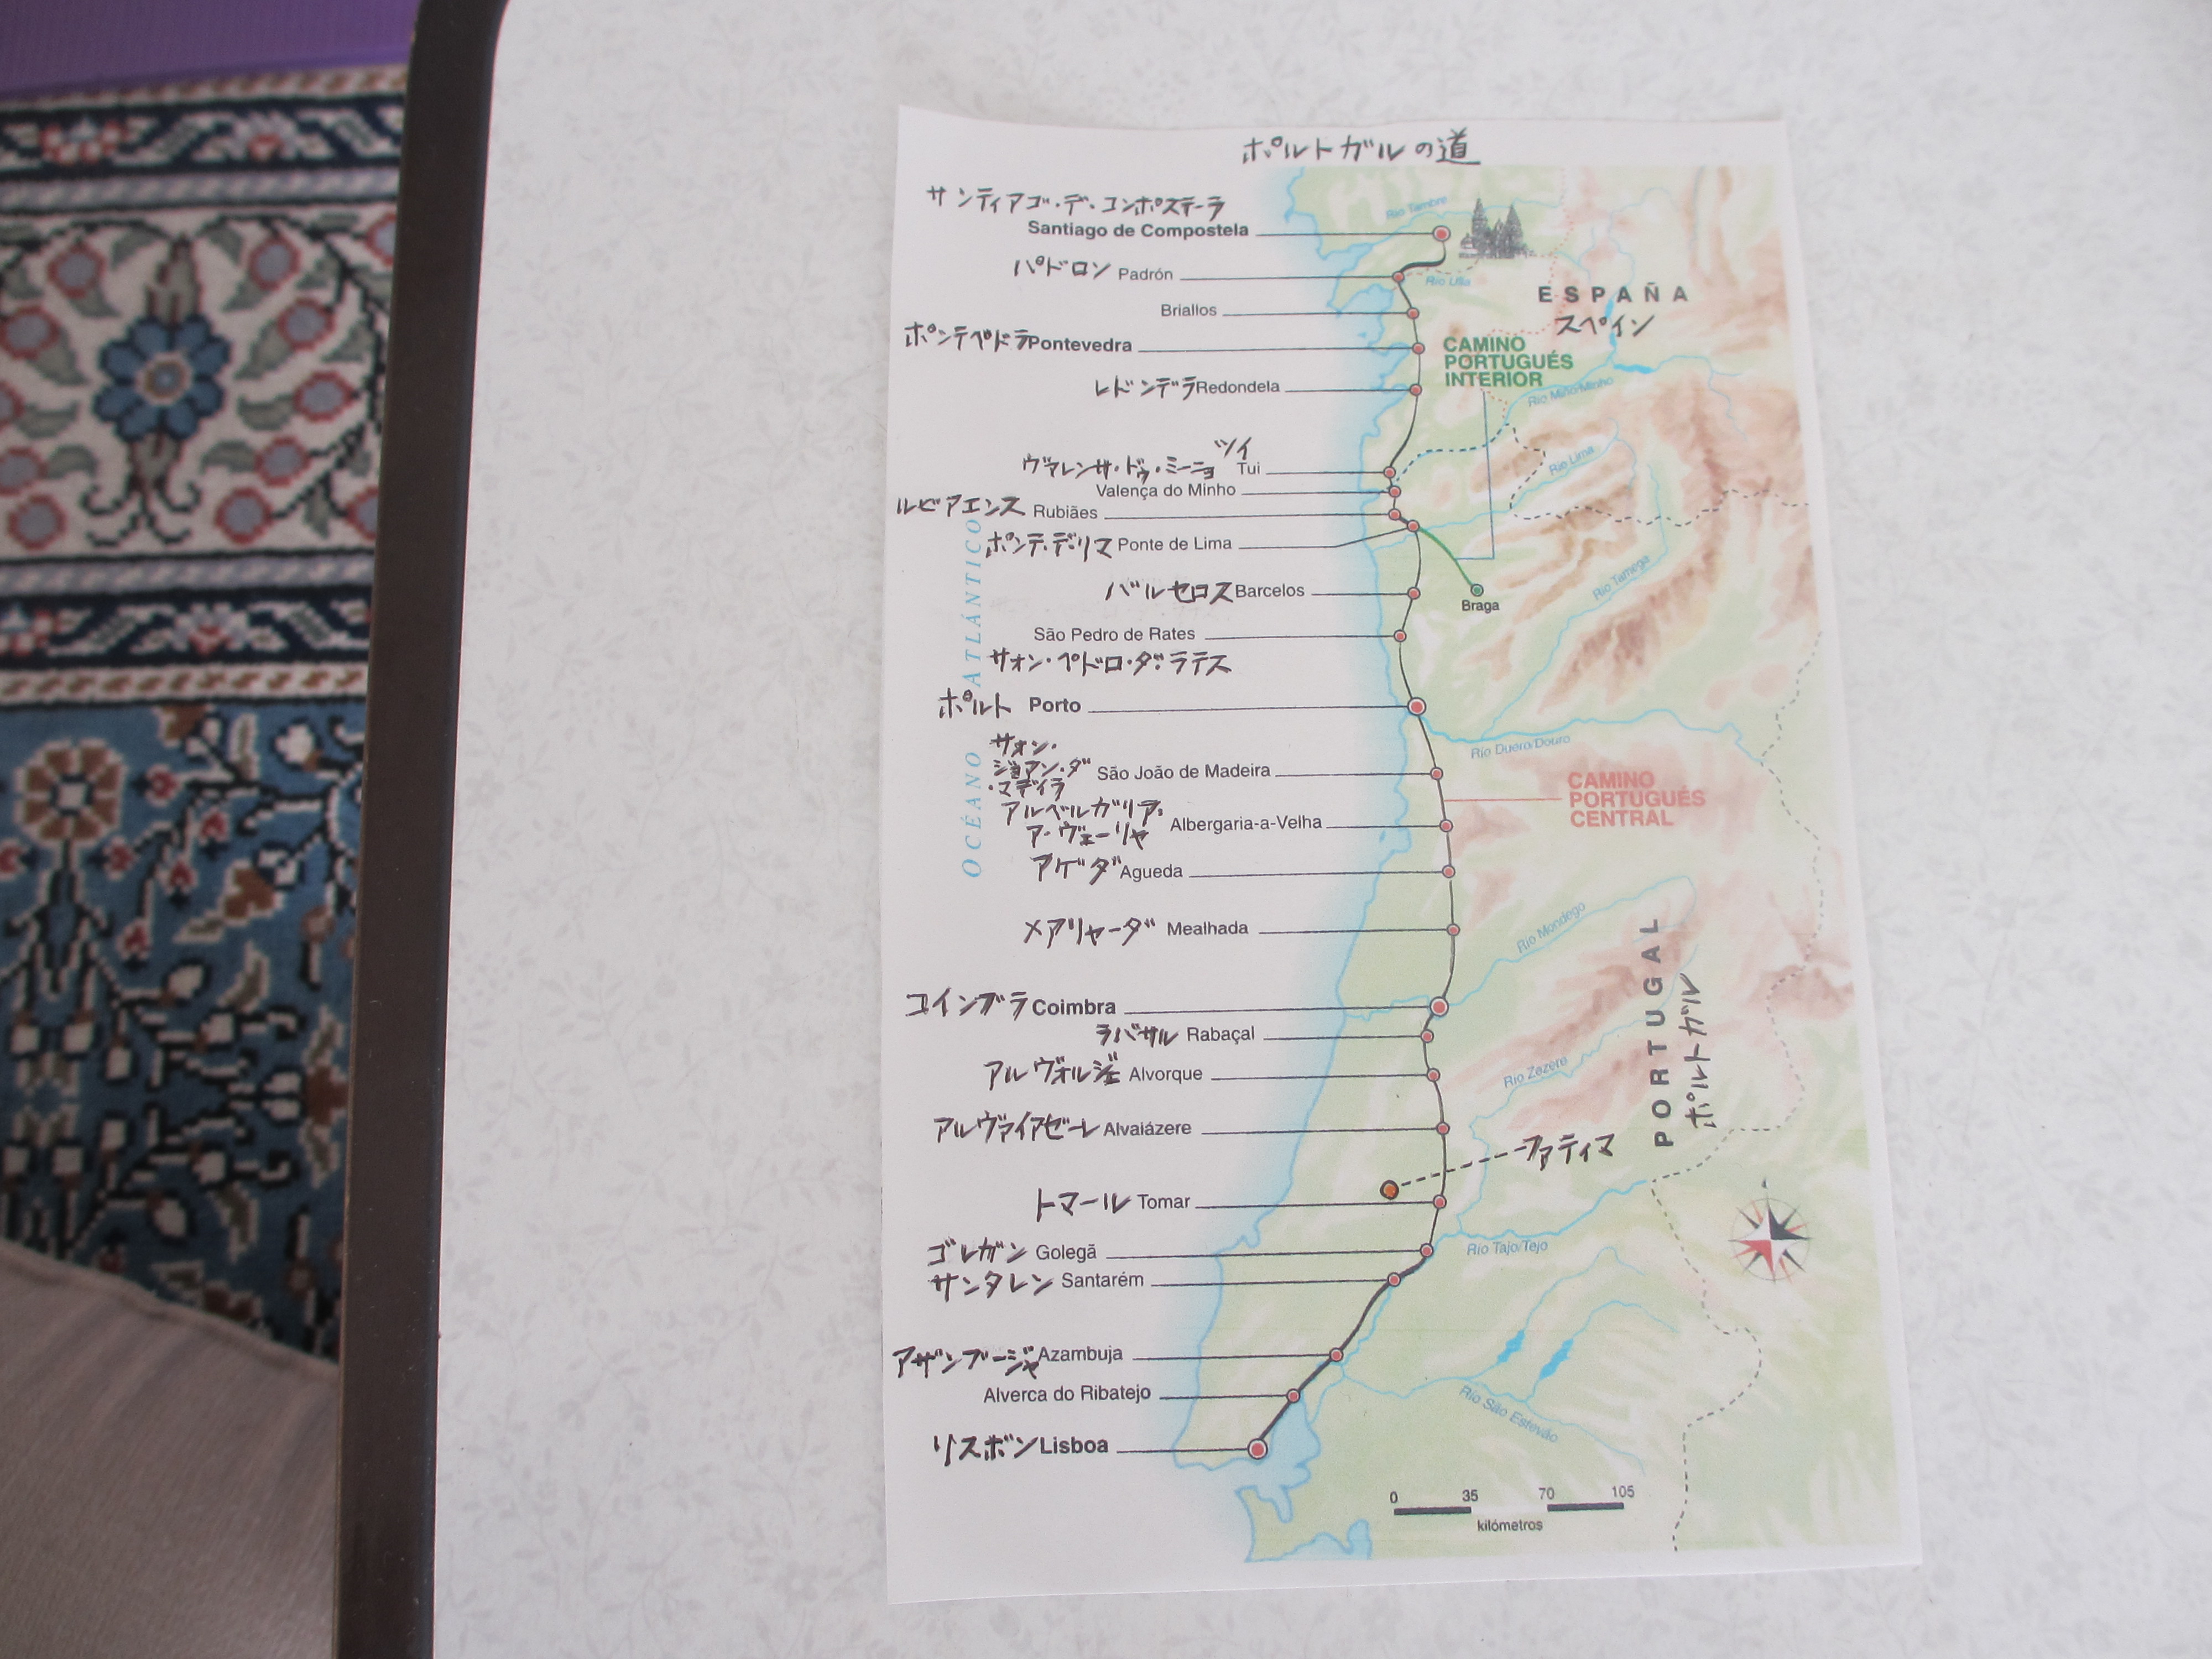 ポルトガルの道
サンティアゴ・デ・コンポステーラ
Santiago de Compostela
Río Tambre
パドロン Padrón
Río Ulla
Briallos
ESPAÑA
スペイン
ポンテペドラ Pontevedra
CAMINO
PORTUGUÉS
INTERIOR
レドンデラ Redondela
Río Miño/Minho
ツイ
Tui
ヴァレンサ・ドゥ・ミーニョ
Valença do Minho
Río Lima
ルビアエンス Rubiães
ポンテ・デ・リマ Ponte de Lima
バルセロス Barcelos
Braga
Río Tamega
São Pedro de Rates
サォン・ペドロ・ダ・ラテス
ポルト Porto
OCÉANO ATLÁNTICO
Río Duero/Douro
サォン・
ジョアン・ダ
・マデイラ
São João de Madeira
CAMINO
PORTUGUÉS
CENTRAL
アルベルガリア・
ア・ヴェーリャ
Albergaria-a-Velha
アゲダ Agueda
メアリャーダ Mealhada
Río Mondego
コインブラ Coimbra
ラバサル Rabaçal
アルヴォルジェ Alvorque
Río Zezere
PORTUGAL
ポルトガル
アルヴァイアゼーレ Alvaiázere
ファティマ
トマール Tomar
ゴレガン Golegã
Río Tajo/Tejo
サンタレン Santarém
アザンブージャ Azambuja
Alverca do Ribatejo
Río São Estevão
リスボン Lisboa
0 35 70 105
kilómetros